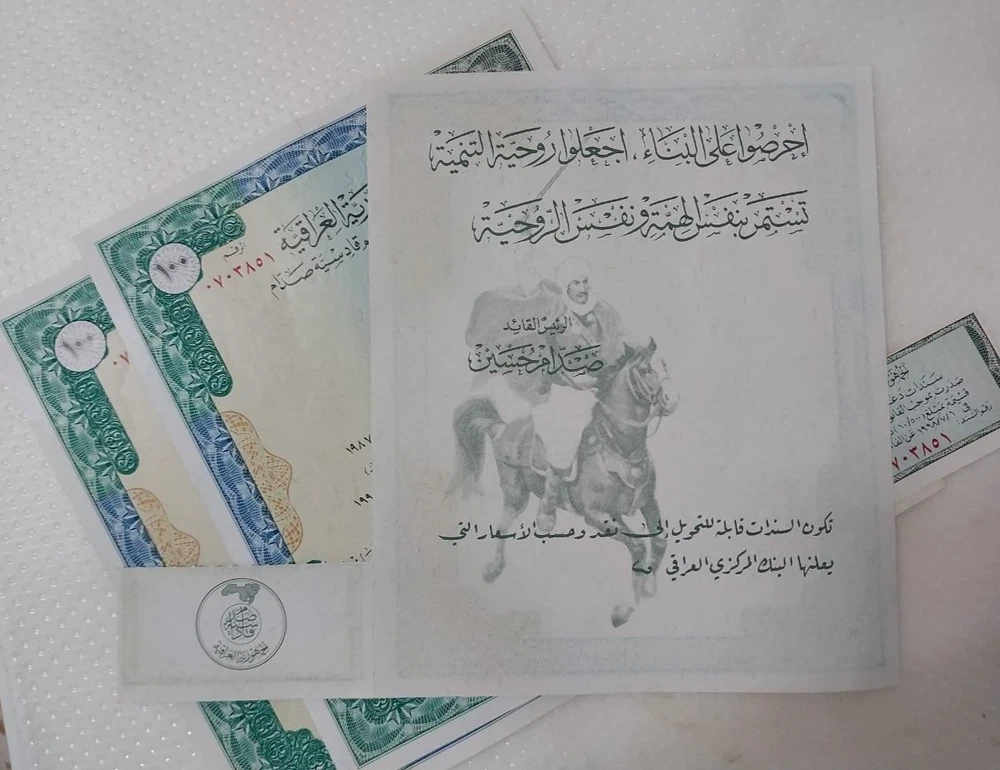 احرصوا على البناء، اجعلوا روحية التنمية
تستمر بنفس الهمة ونفس الروحية
الرئيس القائد
صدام حسين
تكون السندات قابلة للتحويل إلى نقد وحسب الأسعار التي
يعلنها البنك المركزي العراقي
صدام
قادسية
الجمهورية العراقية
١٠٠
الرقم
٠٧٠٣٨٥١
العراقية
قادسية صدام
١٩٨٧
١٩٩
١٠٠
٠٧
سندات
صدرت بموجب القانون
قيمة مبلغ
٧٠٣٨٥١